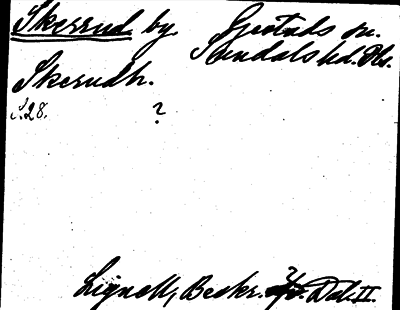 Skerrud by Gestads sn.
Sundals hd. Dls.
Skerudh.
s.28. ?
Lignell, Beskr. Dal. II.